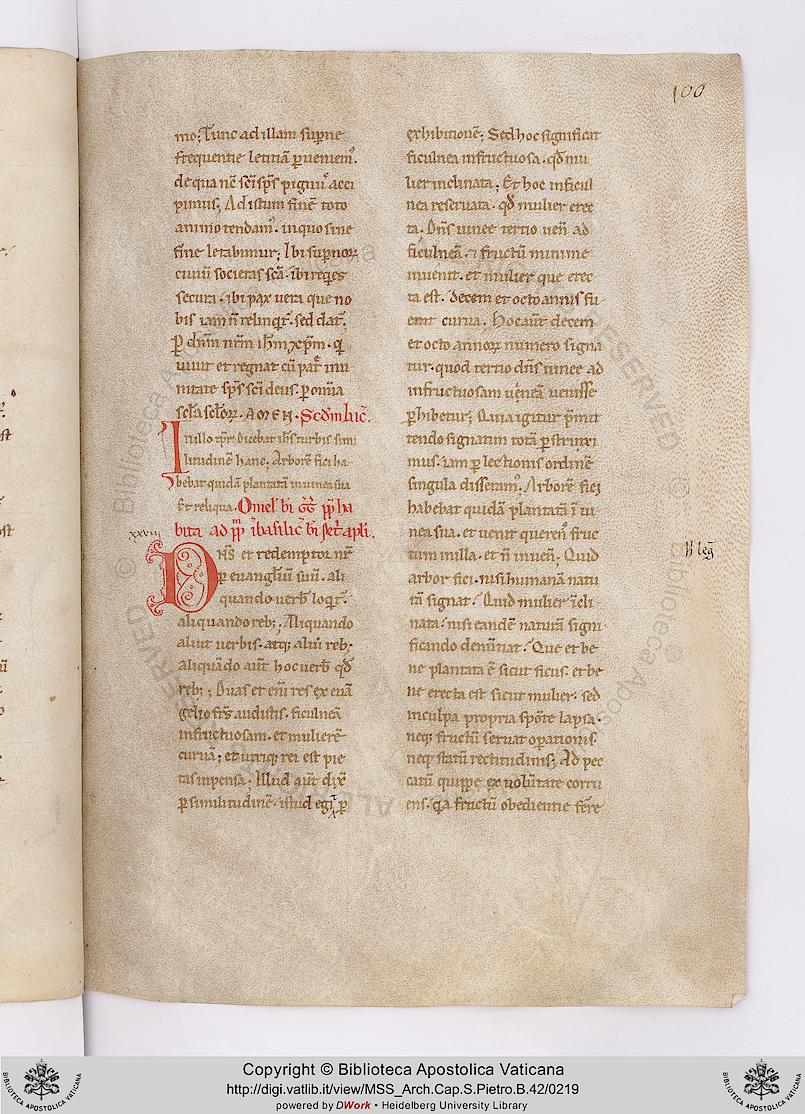 100
mo; Tunc ad illam sup̄ne
frequentie letitiā ꝑueniem᷒.
de qua nc̄ sc̄i sp̄s pignu᷒ acci
pimus; Ad istum finē toto
animo tendam᷒. in quo sine
fine letabimur; Ibi sup̄noꝝ
ciuiū societas sc̄a. ibi reqͥes
secura. ibi pax uera que no
bis iam n̄ relinqͥt᷒. sed dat᷒.
ꝑ dn̄m nr̄m ih̄m xp̄m. qͥ
uiuit et regnat cū pat̄ inu
nitate sp̄s sc̄i deus. ꝑ om̄ia
sc̄la sc̄loꝝ. AMEN. Scd̄m luc̄.
In illo tp̄r. Dicebat ih̄s turbis simi
litudinē hanc; Arborē fici ha
bebat quidā plantatā in uinea sua
Et reliqua. Omel̄ bi GḠ pp̄ ha
bita ad pp̄lm ī basilic̄ bi petͥ apl̄i.
xxviiii
DN̄S et redemptor nr̄
ꝑ euangl̄iū suū. ali
quando uerb̄ loqͥt᷒.
aliquando reb;; Aliquando
aliut uerbis. atq; aliū reb;
aliquādo aūt hoc uerb̄ qđ
reb;; Duas et enī res ex euā
gelio fr̄s audistis. ficulneā
infructuosam. et mulierē
curuā; et utriq; rei est pie
tas inpensa; Illud aūt dix̄
ꝑ similitudinē. istud egiͭ ꝑ
exhibitionē; Sed hoc significat
ficulnea infructuosa. qđ mu
lier inclinata; Et hoc in ficul
nea reseruata. qđ mulier erec
ta. Dn̄s uinee tertio uen̄ ad
ficulneā. ⁊ fructū minime
inuenit. et mulier que erec
ta est. decem et octo annis fu
erat curua. Hoc aūt decem
et octo annoꝝ numero signa
tur. quod tertio dn̄s uinee ad
infructuosam uineā uenisse
ꝑhibetur; Quia igitur p̄mit
tendo signatim totā ꝑstrinxi
mus. iam ꝑ lectionis ordinē
singula disseram᷒. Arborē fici
habebat quidā plantatā ī ui
nea sua. et uenit querenˢ fruc
tum in illa. et n̄ inuen̄. Quid
arbor fici. nisi humanā natu
rā signat? Quid mulier īcli
nata? nisi eandē naturā signi
ficando denūtiat? Que et be
ne plantata ē sicut ficus. et be
ne erecta est sicut mulier. sed
in culpa propria spōte lapsa.
neq; fructū seruat oꝑationis.
neq; statū rectitudinis; Ad pec
catū quippe ex uolūtate corru
ens. qͥa fructū obedientie ferre
II leg̃
Copyright © Biblioteca Apostolica Vaticana
http://digi.vatlib.it/view/MSS_Arch.Cap.S.Pietro.B.42/0219
powered by DWork • Heidelberg University Library